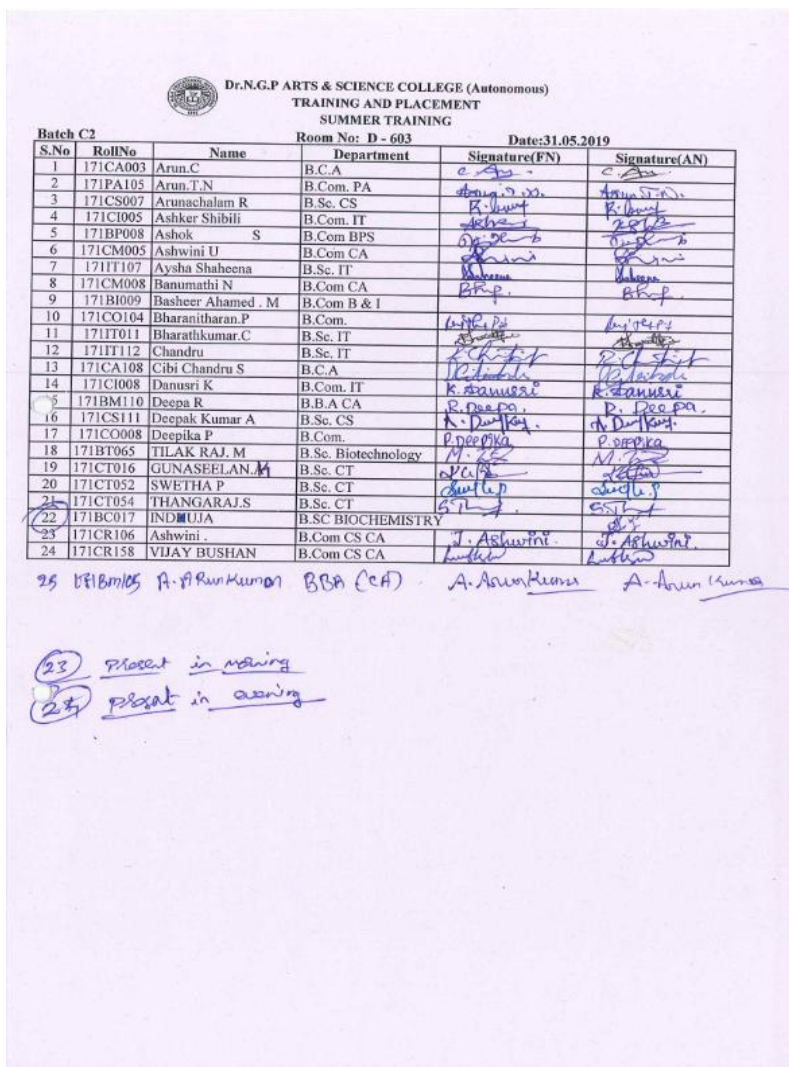 Dr.N.G.P ARTS & SCIENCE COLLEGE (Autonomous)
TRAINING AND PLACEMENT
SUMMER TRAINING
Batch C2 Room No: D - 603 Date:31.05.2019
S.No RollNo Name Department Signature(FN) Signature(AN)
1 171CA003 Arun.C B.C.A
2 171PA105 Arun.T.N B.Com. PA Arun.T.N.
3 171CS007 Arunachalam R B.Sc. CS
4 171CI005 Ashker Shibili B.Com. IT
5 171BP008 Ashok S B.Com BPS
6 171CM005 Ashwini U B.Com CA
7 171IT107 Aysha Shaheena B.Sc. IT
8 171CM008 Banumathi N B.Com CA
9 171BI009 Basheer Ahamed . M B.Com B & I
10 171CO104 Bharanitharan.P B.Com.
11 171IT011 Bharathkumar.C B.Sc. IT
12 171IT112 Chandru B.Sc, IT
13 171CA108 Cibi Chandru S B.C.A
14 171CI008 Danusri K B.Com. IT K. Danusri K. Danusri
171BM110 Deepa R B.B.A CA R. Deepa. R. Deepa.
16 171CS111 Deepak Kumar A B.Sc. CS
17 171CO008 Deepika P B.Com. P. Deepika P. Deepika
18 171BT065 TILAK RAJ. M B.Sc. Biotechnology
19 171CT016 GUNASEELAN. K B.Sc. CT
20 171CT052 SWETHA P B.Sc. CT
21 171CT054 THANGARAJ.S B.Sc. CT
22 171BC017 INDHUJA B.SC BIOCHEMISTRY
23 171CR106 Ashwini . B.Com CS CA J. Ashwini. J. Ashwini.
24 171CR158 VIJAY BUSHAN B.Com CS CA
25 171BM105 A. ARunKumar BBA (CA) A. ArunKumar A. ArunKumar
23 Present in morning
24 present in evening